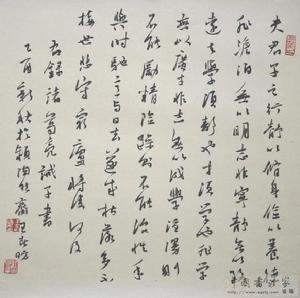 夫君子之行靜以脩身儉以養德
非澹泊無以明志非寧靜無以致
遠夫學須靜也才須學也非學
無以廣才非志無以成學淫漫則
不能勵精險躁則不能治性年
與時馳意與日去遂成枯落多不
接世悲守窮廬將復何及
右録諸葛亮誡子書
乙酉新秋於潁陶然齋王